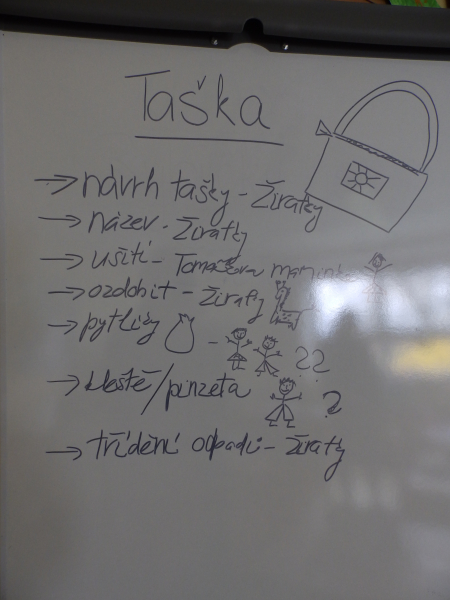 Taška
→ návrh tašky - Žirafky
→ název - Žirafky
→ ušití - Tomášova maminka
→ ozdobit - žirafy
→ pytlíky - ??
→ kleště/pinzeta ?
→ třídění odpadu - žirafy